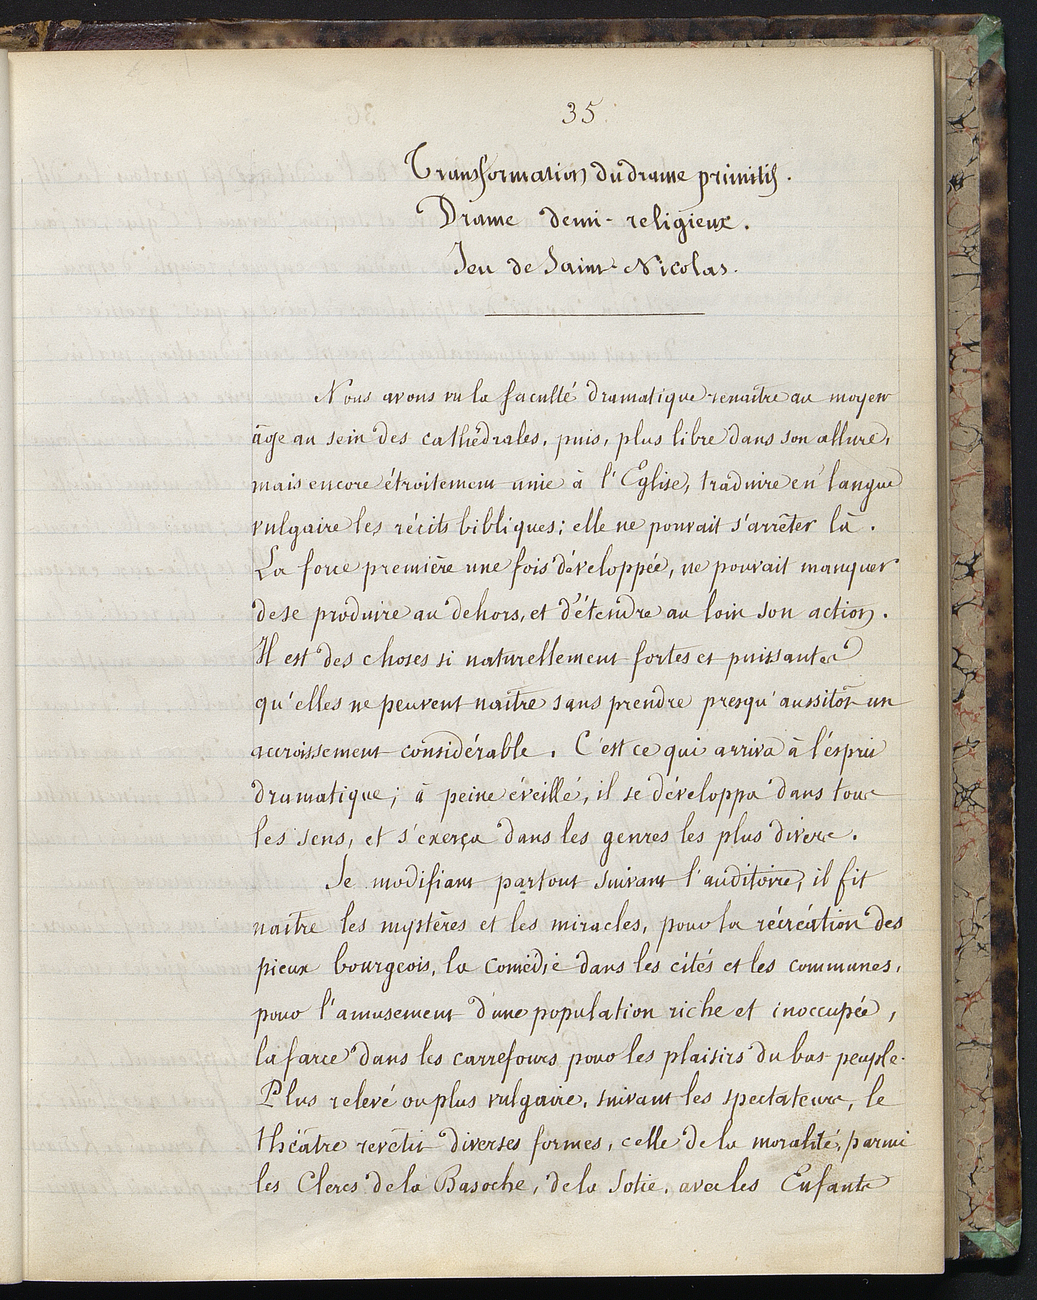 35.
Transformation du drame primitif.
Drame demi-religieux.
Jeu de Saint-Nicolas.
Nous avons vu la faculté dramatique renaître au moyen
âge au sein des cathédrales, puis, plus libre dans son allure,
mais encore étroitement unie à l'Eglise, traduire en langue
vulgaire les récits bibliques; elle ne pouvait s'arrêter là.
La force première une fois développée, ne pouvait manquer
de se produire au dehors, et d'étendre au loin son action.
Il est des choses si naturellement fortes et puissantes
qu'elles ne peuvent naître sans prendre presqu'aussitôt un
accroissement considérable. C'est ce qui arriva à l'esprit
dramatique; à peine éveillé, il se développa dans tous
les sens, et s'exerça dans les genres les plus divers.
Se modifiant partout suivant l'auditoire, il fit
naître les mystères et les miracles, pour la récréation des
pieux bourgeois, la comédie dans les cités et les communes,
pour l'amusement d'une population riche et inoccupée,
la farce dans les carrefours pour les plaisirs du bas peuple.
Plus relevé ou plus vulgaire, suivant les spectateurs, le
théâtre revêtit diverses formes, celle de la moralité, parmi
les Clercs de la Basoche, de la Sotie, avec les Enfants